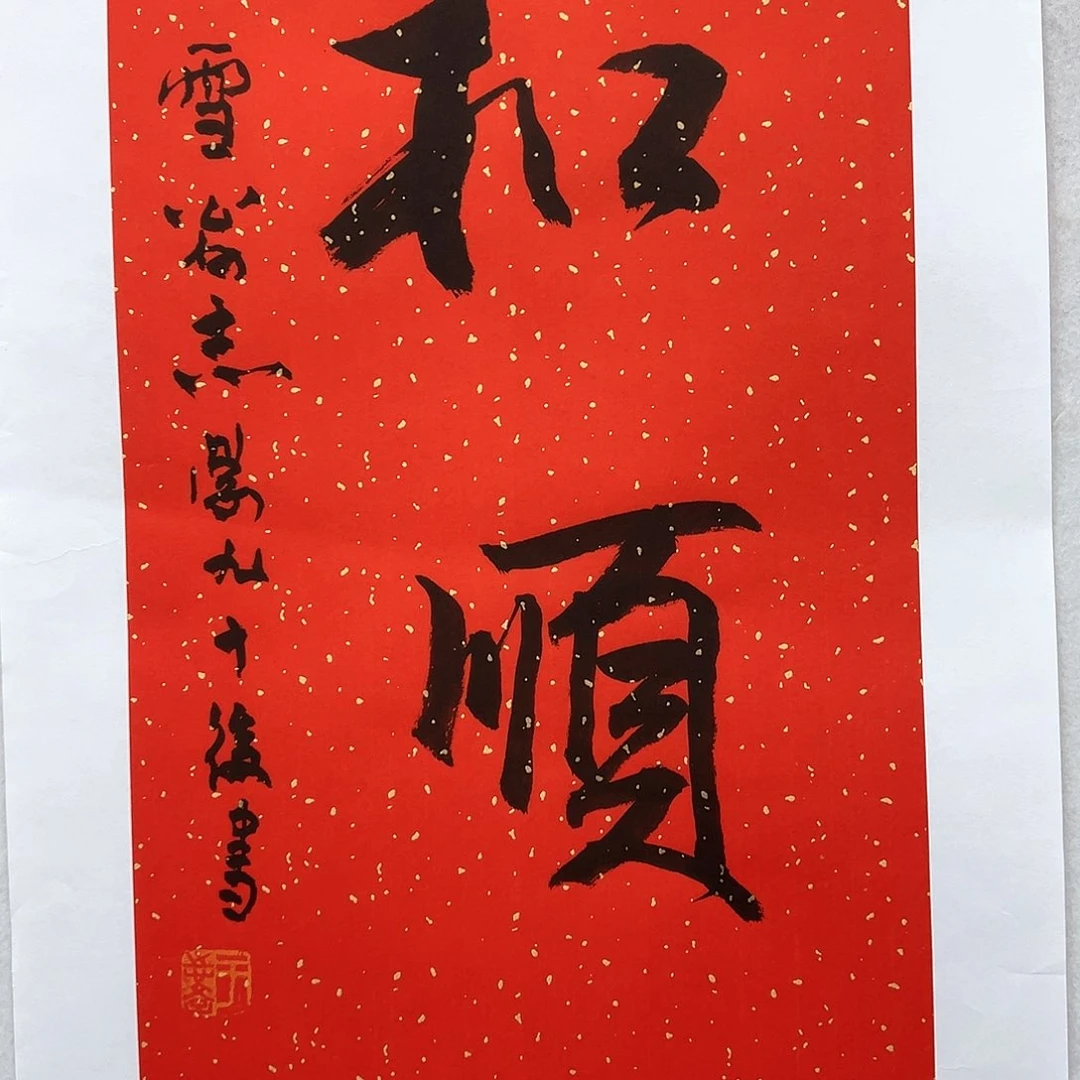 和順
雪翁志陽九十後書